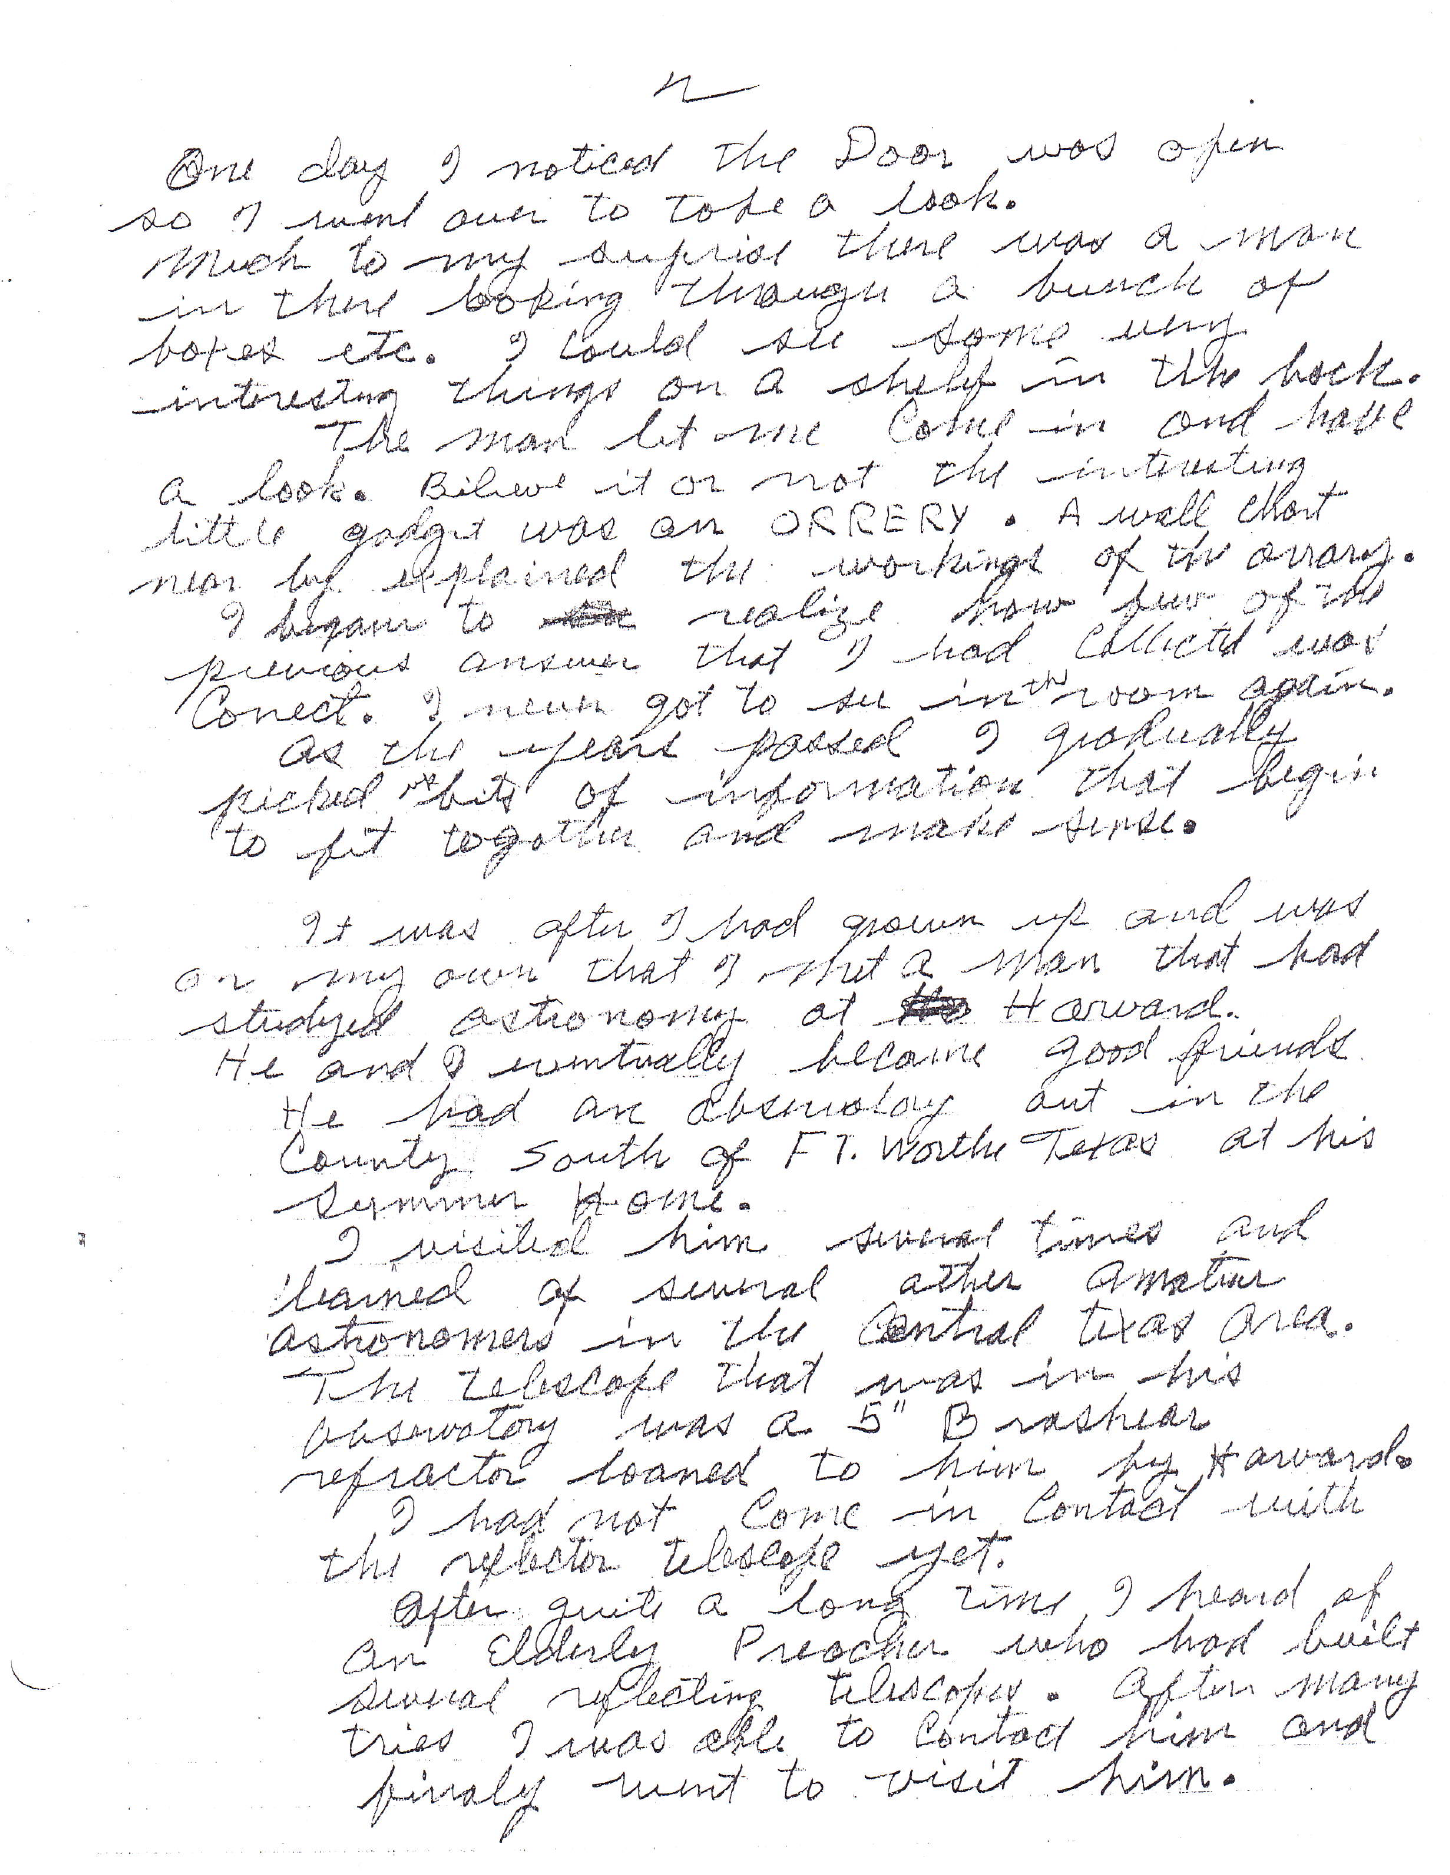 2
One day I noticed the Door was open
so I went over to take a look.
Much to my suprise there was a man
in there looking through a bunch of
boxes etc. I could see some very
interesting things on a shelf in the back.
The man let me Come in and have
a look. Bilieve it or not the interesting
little gadget was an ORRERY. A wall chart
near by explained the workings of the orrary.
I began to realize how few of the
previous answer that I had Collected was
Correct. I never got to see in the room again.
As the years passed I gradually
picked up bits of information that begin
to fit together and make sense.
It was after I had grown up and was
on my own that I met a man that had
studyed astronomy at Harvard.
He and I eventually became good friends
He had an observatory out in the
County South of FT. Worth Texas at his
Summer Home.
I visited him several times and
learned of several other amatur
astronomers in the Central texas area.
The telescope that was in his
observatory was a 5" Brashear
refractor loaned to him by Harvard.
I had not Come in Contact with
the reflector telescope yet.
After quite a long time I heard of
an Elderly Preacher who had built
several reflecting telescopes. After many
tries I was able to Contact him and
finaly went to visit him.